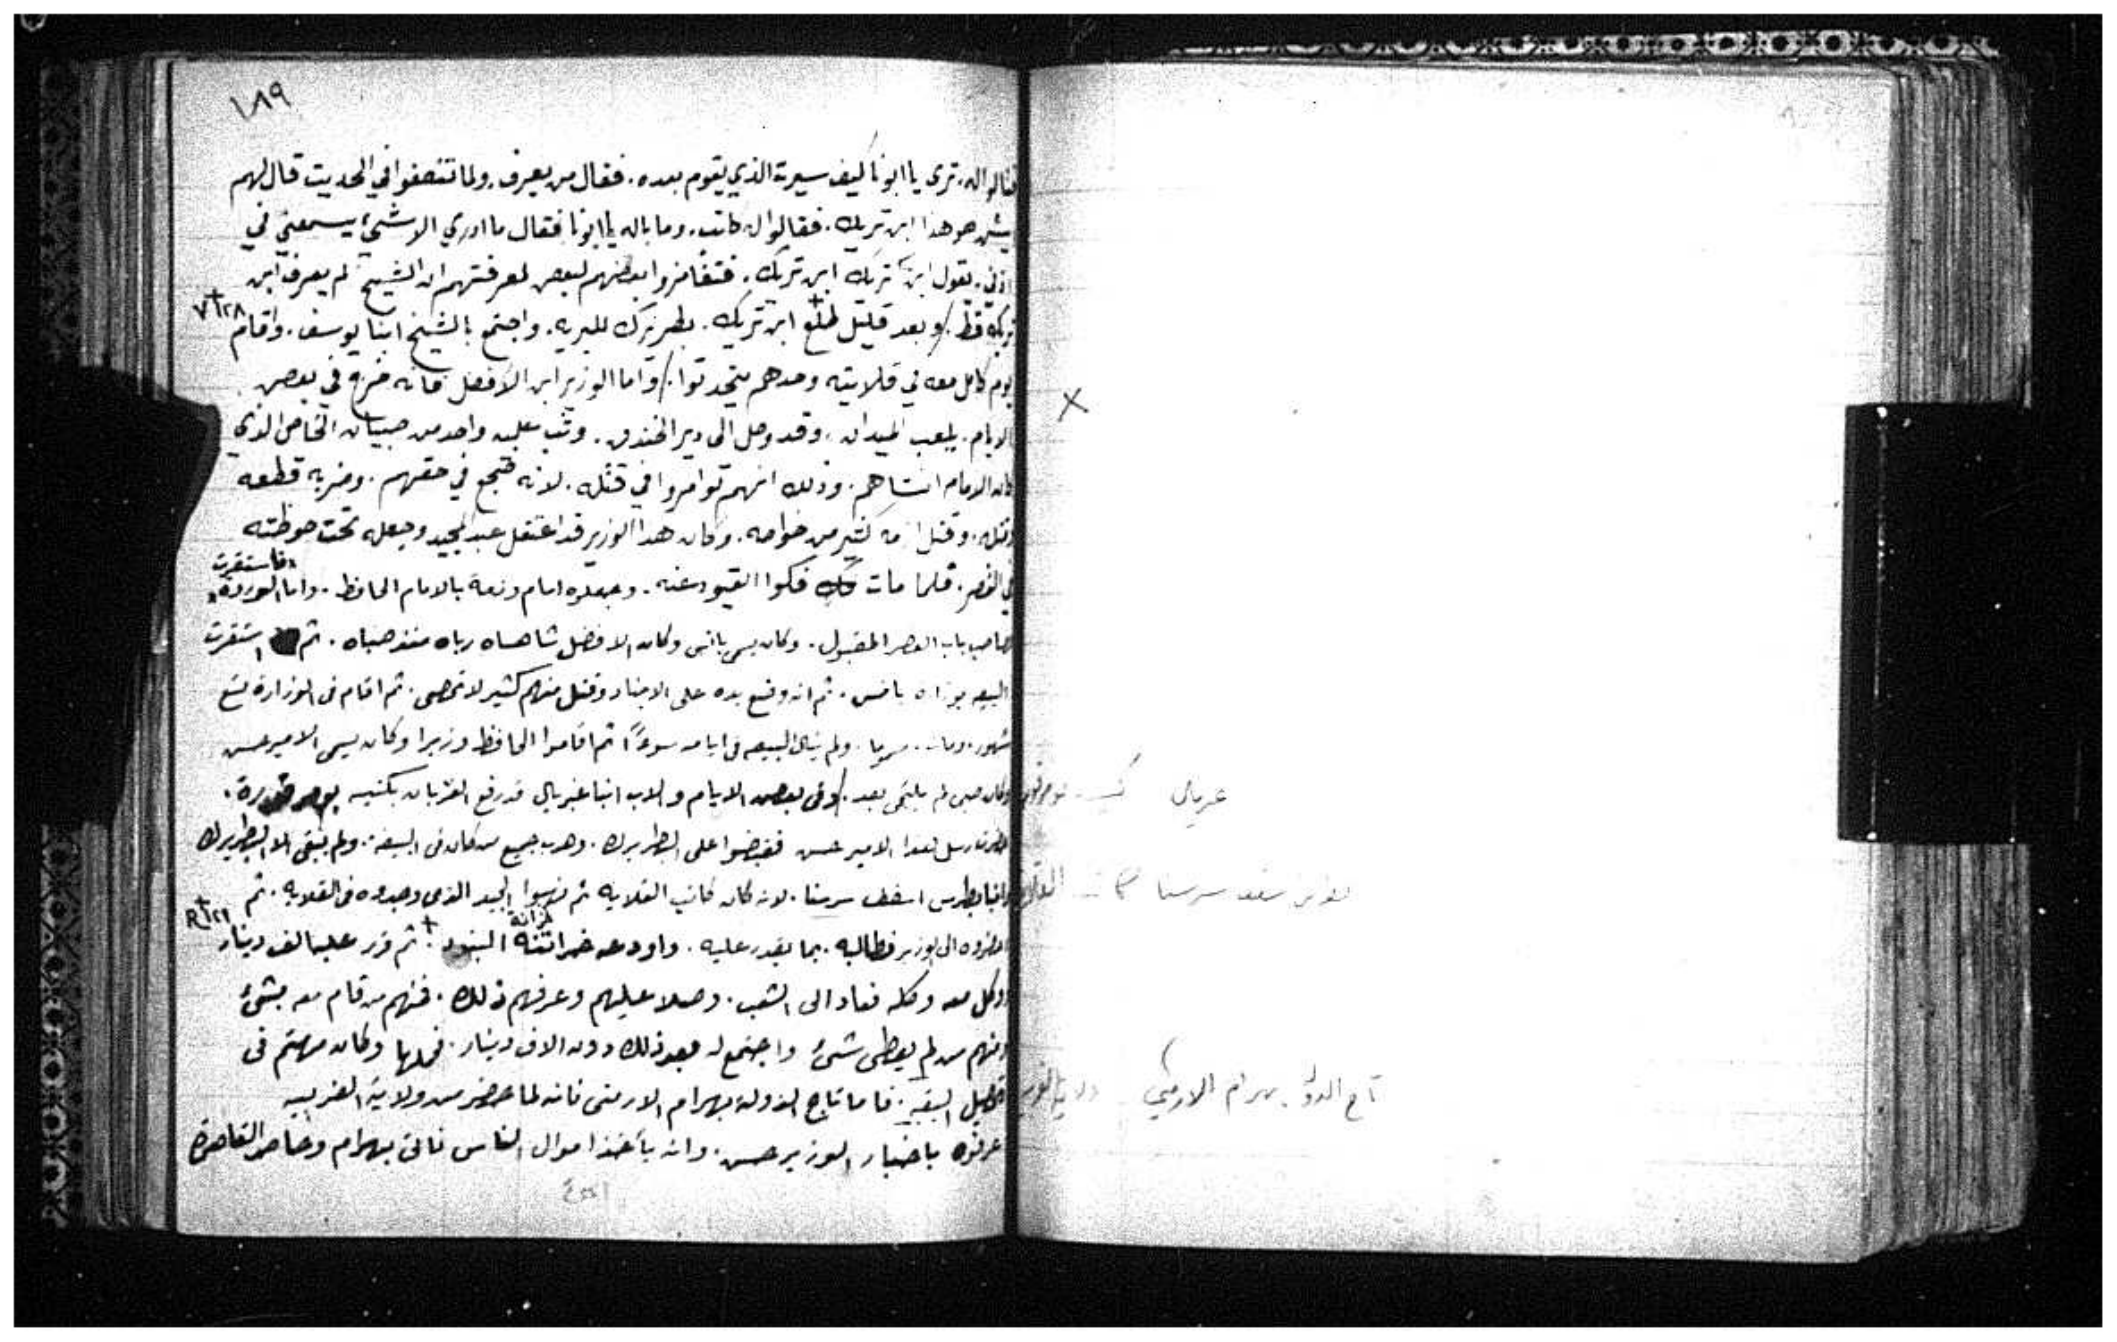 ١٨٩
فقالوا له. ترى يا ابونا كيف سيرة الذي يقوم بعده. فقال من يعرف. ولما تنصفوا في الحديث قال لهم
هو هذا ابن تريك. فقالوا له كاتب. وما باله يا ابونا فقال ما ادري الا شيء يسمعني في
اذني. يقول ابن تريك ابن تريك. فتغامزوا بعضهم لبعض لمعرفتهم ان الشيخ لم يعرف ابن
تريك قط. / وبعد قليل طلع ابن تريك. بطريرك للبريه. واجتمع بالشيخ انبا يوسف. واقام
يوم كامل معه في قلايته وحدهم يتحدثوا. / واما الوزير ابن الافضل فانه خرج في بعض
الايام. يلعب الميدان. وقد وصل الى دير الخندق. وثب عليه واحد من صبيان الخاص الذي
كان الامام انشاهم. وذلك انهم توامروا في قتله. لانه قبح في حقهم. وضربه قطعه
وقتله. وقتل كثير من خواصه. وكان هدا الوزير قد اعتقل عبد المجيد وجعله تحت حوطته
فاستقرت
في القصر. فلما مات فكوا القيود عنه. وجعلوه امام ونعة بالامام الحافظ. واما
صاحب باب القصر المقبول. وكان يسمى يانس وكان الافضل شاهنشاه رباه منذ صباه. ثم استقرت
يانس. ثم انه وضع يده على الاجناد وقتل منهم كثير لا تحصى. ثم اقام في الوزارة تسع
شهور. ومات. ولم ينال البيعه في ايامه سوءًا ثم اقاموا الحافظ وزيرا وكان يسمى الامير حسن
وكان صبي لم يلتحى بعد. / وفى بعض الايام والاب انبا غبريال قد رفع القربان بكنيسه
هذا الامير حسن فقبضوا على البطريرك. وهرب جميع من كان فى البيعه. ولم يبقى الا البطريرك
وانبا بطرس اسقف سرسنا. لانه كان كاتب القلايه ثم نهبوا الجيد الذى وجدوه فى القلايه. ثم
خزانة
احضروه الى الوزير فطالبه. بما يقدر عليه. واودعه خزانته البنود. ثم قرر عليه الف دينار
ووكل معه وكله فعاد الى الشعب. وصلا عليهم وعرفهم ذلك. فمنهم من قام معه بشيء
ومنهم من لم يعطى شيء واجتمع له بعد ذلك دون الالاف دينار. فحملها وكان مهتم فى
تحصيل البقيه. فاما تاج الدولة بهرام الارمنى فانه لما حضر من ولاية الغربيه
عرفوه باخبار الوزير حسن. وانه ياخذ اموال الناس فاتى بهرام وحاصر القاهرة
غبريال كنيسة
اسقف سرسنا
تاج الدولة بهرام الارمني